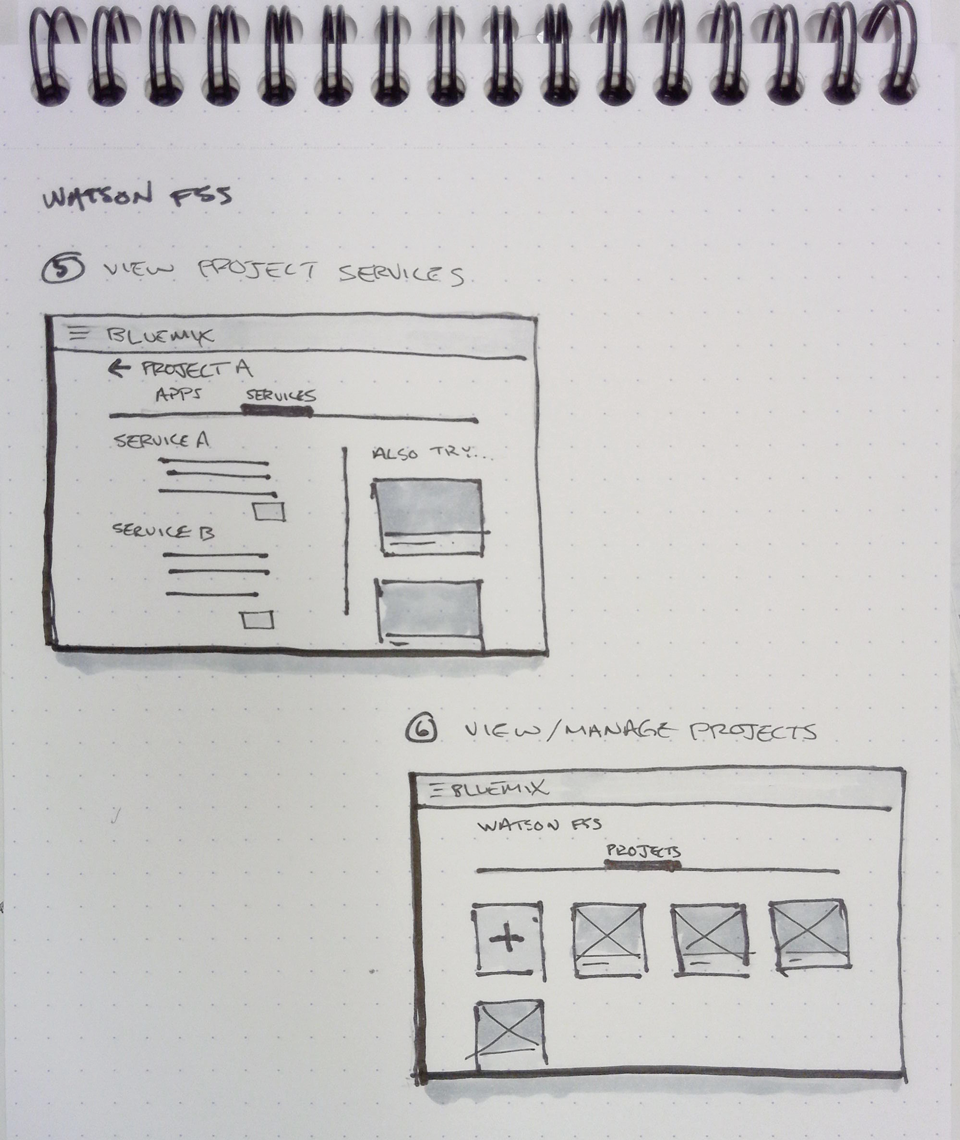 WATSON FSS
5 VIEW PROJECT SERVICES
≡ BLUEMIX
← PROJECT A
APPS SERVICES
SERVICE A
ALSO TRY...
SERVICE B
6 VIEW/MANAGE PROJECTS
≡ BLUEMIX
WATSON FSS
PROJECTS
+